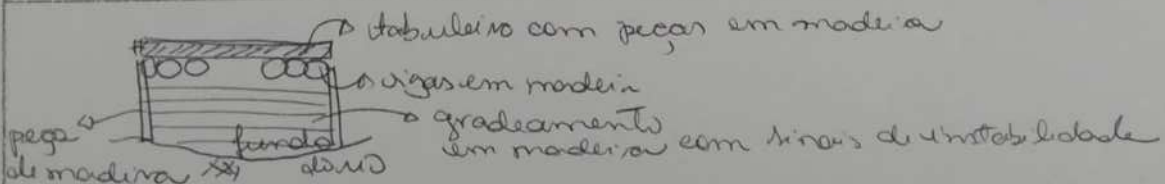 tabuleiro com peças em madeira
vigas em madeira
gradeamento
em madeira com sinais de instabilidade
peça
de madeira
fundo
do rio